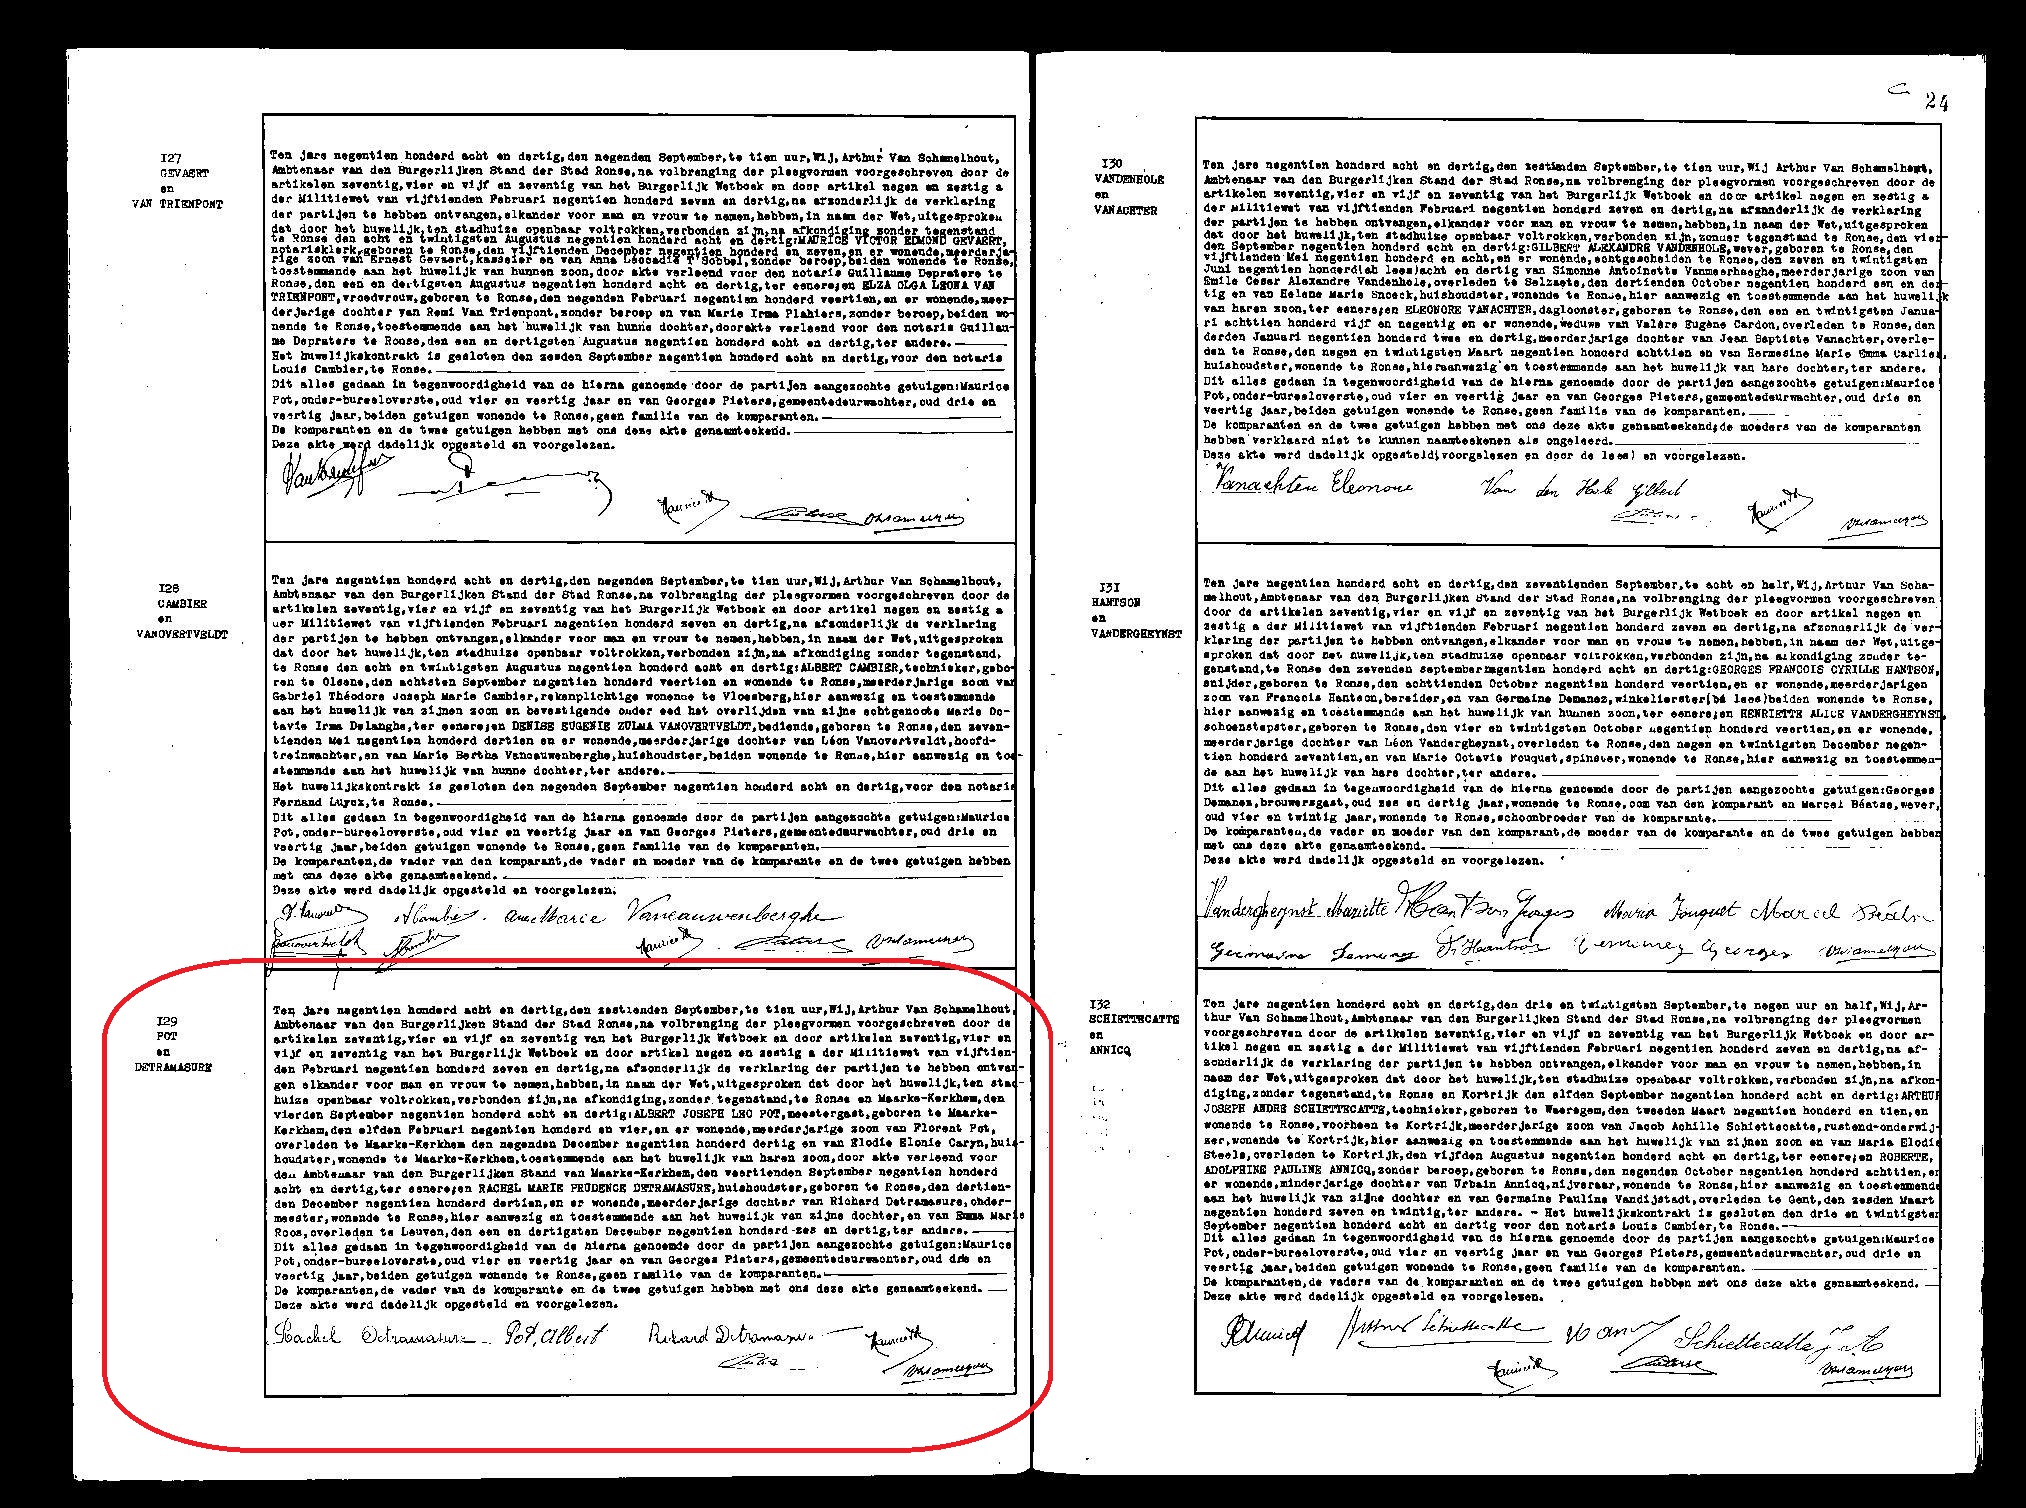 I27
GEVAERT
en
VAN TRIENPONT
Ten jare negentien honderd acht en dertig,den negenden September,te tien uur,Wij,Arthur Van Schamelhout,
Ambtenaar van den Burgerlijken Stand der Stad Ronse,na volbrenging der pleegvormen voorgeschreven door de
artikelen zeventig,vier en vijf en zeventig van het Burgerlijk Wetboek en door artikel negen en zestig a
der Militiewet van vijftienden Februari negentien honderd zeven en dertig,na afzonderlijk de verklaring
der partijen te hebben ontvangen,elkander voor man en vrouw te nemen,hebben,in naam der Wet,uitgesproken
dat door het huwelijk,ten stadhuize openbaar voltrokken,verbonden zijn,na afkondiging zonder tegenstand
te Ronse den acht en twintigsten Augustus negentien honderd acht en dertig:MAURICE VICTOR EDMOND GEVAERT,
notarisklerk,geboren te Ronse,den vijftienden December negentien honderd en zeven,en er wonende,meerderja-
rige zoon van Ernest Gevaert,kasseier en van Anna Leocadie T'Sobbel,zonder beroep,beiden wonende te Ronse,
toestemmende aan het huwelijk van hunnen zoon,door akte verleend voor den notaris Guillaume Depratere te
Ronse,den een en dertigsten Augustus negentien honderd acht en dertig,ter eenere;en ELZA OLGA LEONA VAN
TRIENPONT,vroedvrouw,geboren te Ronse,den negenden Februari negentien honderd veertien,en er wonende,meer-
derjarige dochter van Remi Van Trienpont,zonder beroep en van Marie Irma Plahiers,zonder beroep,beiden wo-
nende te Ronse,toestemmende aan het huwelijk van hunne dochter,doorakte verleend voor den notaris Guillau-
me Depratere te Ronse,den een en dertigsten Augustus negentien honderd acht en dertig,ter andere.
Het huwelijkskontrakt is gesloten den zesden September negentien honderd acht en dertig,voor den notaris
Louis Cambier,te Ronse.
Dit alles gedaan in tegenwoordigheid van de hierna genoemde door de partijen aangezochte getuigen:Maurice
Pot,onder-bureeloverste,oud vier en veertig jaar en van Georges Pieters,gemeentedeurwachter,oud drie en
veertig jaar,beiden getuigen wonende te Ronse,geen familie van de komparanten.
De komparanten en de twee getuigen hebben met ons deze akte genaamteekend.
Deze akte werd dadelijk opgesteld en voorgelezen.
I28
CAMBIER
en
VANOVERTVELDT
Ten jare negentien honderd acht en dertig,den negenden September,te tien uur,Wij,Arthur Van Schamelhout,
Ambtenaar van den Burgerlijken Stand der Stad Ronse,na volbrenging der pleegvormen voorgeschreven door de
artikelen zeventig,vier en vijf en zeventig van het Burgerlijk Wetboek en door artikel negen en zestig a
der Militiewet van vijftienden Februari negentien honderd zeven en dertig,na afzonderlijk de verklaring
der partijen te hebben ontvangen,elkander voor man en vrouw te nemen,hebben,in naam der Wet,uitgesproken
dat door het huwelijk,ten stadhuize openbaar voltrokken,verbonden zijn,na afkondiging zonder tegenstand,
te Ronse den acht en twintigsten Augustus negentien honderd acht en dertig:ALBERT CAMBIER,technieker,gebo-
ren te Olsene,den achtsten September negentien honderd veertien en wonende te Ronse,meerderjarige zoon van
Gabriel Théodore Joseph Marie Cambier,rekenplichtige wonende te Vloesberg,hier aanwezig en toestemmende
aan het huwelijk van zijnen zoon en bevestigende onder eed het overlijden van zijne echtgenoote Marie Oc-
tavie Irma Delanghe,ter eenere;en DENISE EUGENIE ZULMA VANOVERTVELDT,bediende,geboren te Ronse,den zeven-
tienden Mei negentien honderd dertien en er wonende,meerderjarige dochter van Léon Vanovertveldt,hoofd-
treinwachter,en van Marie Bertha Vancauwenberghe,huishoudster,beiden wonende te Ronse,hier aanwezig en toe-
stemmende aan het huwelijk van hunne dochter,ter andere.
Het huwelijkskontrakt is gesloten den negenden September negentien honderd acht en dertig,voor den notaris
Fernand Luyex,te Ronse.
Dit alles gedaan in tegenwoordigheid van de hierna genoemde door de partijen aangezochte getuigen:Maurice
Pot,onder-bureeloverste,oud vier en veertig jaar en van Georges Pieters,gemeentedeurwachter,oud drie en
veertig jaar,beiden getuigen wonende te Ronse,geen familie van de komparanten.
De komparanten,de vader van den komparant,de vader en moeder van de komparante en de twee getuigen hebben
met ons deze akte genaamteekend.
Deze akte werd dadelijk opgesteld en voorgelezen.
Vancauwenberghe
I29
POT
en
DETRAMASURE
Ten jare negentien honderd acht en dertig,den zestienden September,te tien uur,Wij,Arthur Van Schamelhout,
Ambtenaar van den Burgerlijken Stand der Stad Ronse,na volbrenging der pleegvormen voorgeschreven door de
artikelen zeventig,vier en vijf en zeventig van het Burgerlijk Wetboek en door artikelen zeventig,vier en
vijf en zeventig van het Burgerlijk Wetboek en door artikel negen en zestig a der Militiewet van vijftien-
den Februari negentien honderd zeven en dertig,na afzonderlijk de verklaring der partijen te hebben ontvan-
gen elkander voor man en vrouw te nemen,hebben,in naam der Wet,uitgesproken dat door het huwelijk,ten stad-
huize openbaar voltrokken,verbonden zijn,na afkondiging,zonder tegenstand,te Ronse en Maarke-Kerkhem,den
vierden September negentien honderd acht en dertig:ALBERT JOSEPH LEO POT,meestergast,geboren te Maarke-
Kerkhem,den elfden Februari negentien honderd en vier,en er wonende,meerderjarige zoon van Florent Pot,
overleden te Maarke-Kerkhem den negenden December negentien honderd dertig en van Elodie Elonie Caryn,huis-
houdster,wonende te Maarke-Kerkhem,toestemmende aan het huwelijk van haren zoon,door akte verleend voor
den Ambtenaar van den Burgerlijken Stand van Maarke-Kerkhem,den veertienden September negentien honderd
acht en dertig,ter eenere;en RACHEL MARIE PRUDENCE DETRAMASURE,huishoudster,geboren te Ronse,den dertien-
den December negentien honderd dertien,en er wonende,meerderjarige dochter van Richard Detramasure,onder-
meester,wonende te Ronse,hier aanwezig en toestemmende aan het huwelijk van zijne dochter,en van Emma Marie
Roos,overleden te Leuven,den een en dertigsten December negentien honderd-zes en dertig,ter andere.
Dit alles gedaan in tegenwoordigheid van de hierna genoemde door de partijen aangezochte getuigen:Maurice
Pot,onder-bureeloverste,oud vier en veertig jaar en van Georges Pieters,gemeentedeurwachter,oud drie en
veertig jaar,beiden getuigen wonende te Ronse,geen familie van de komparanten.
De komparanten,de vader van de komparante en de twee getuigen hebben met ons deze akte genaamteekend.
Deze akte werd dadelijk opgesteld en voorgelezen.
Rachel Detramasure Pot, Albert Rikard Detramasure
24
I30
VANDENHOLE
en
VANACHTER
Ten jare negentien honderd acht en dertig,den zestienden September,te tien uur,Wij Arthur Van Schamelhout,
Ambtenaar van den Burgerlijken Stand der Stad Ronse,na volbrenging der pleegvormen voorgeschreven door de
artikelen zeventig,vier en vijf en zeventig van het Burgerlijk Wetboek en door artikel negen en zestig a
der Militiewet van vijftienden Februari negentien honderd zeven en dertig,na afzonderlijk de verklaring
der partijen te hebben ontvangen,elkander voor man en vrouw te nemen,hebben,in naam der Wet,uitgesproken
dat door het huwelijk,ten stadhuize openbaar voltrokken,verbonden zijn,zonder tegenstand te Ronse,den vier-
den September negentien honderd acht en dertig:GILBERT ALEXANDRE VANDENHOLE,wever,geboren te Ronse,den
vijftienden Mei negentien honderd en acht,en er wonende,echtgescheiden te Ronse,den zeven en twintigsten
Juni negentien honderd(ab lees)acht en dertig van Simonne Antoinette Vanmeerhaeghe,meerderjarige zoon van
Emile Cesar Alexandre Vandenhole,overleden te Selzaete,den dertienden October negentien honderd een en der-
tig en van Helene Marie Snoeck,huishoudster,wonende te Ronse,hier aanwezig en toestemmende aan het huwelijk
van haren zoon,ter eenere;en ELEONORE VANACHTER,dagloonster,geboren te Ronse,den een en twintigsten Janua-
ri achttien honderd vijf en negentig en er wonende,weduwe van Valère Eugène Cardon,overleden te Ronse,den
derden Januari negentien honderd twee en dertig,meerderjarige dochter van Jean Baptiste Vanachter,overle-
den te Ronse,den negen en twintigsten Maart negentien honderd achttien en van Hermesine Marie Emma Carlier,
huishoudster,wonende te Ronse,hieraanwezig en toestemmende aan het huwelijk van hare dochter,ter andere.
Dit alles gedaan in tegenwoordigheid van de hierna genoemde door de partijen aangezochte getuigen:Maurice
Pot,onder-bureeloverste,oud vier en veertig jaar en van Georges Pieters,gemeentedeurwachter,oud drie en
veertig jaar,beiden getuigen wonende te Ronse,geen familie van de komparanten.
De komparanten en de twee getuigen hebben met ons deze akte genaamteekend;de moeders van de komparanten
hebben verklaard niet te kunnen naamteekenen als ongeleerd.
Deze akte werd dadelijk opgesteld(voorgelezen en door de lees) en voorgelezen.
Vanachter Eleonore Van den Hole Gilbert
I3I
HANTSON
en
VANDERGHEYNST
Ten jare negentien honderd acht en dertig,den zeventienden September,te acht en half,Wij,Artnur Van Scha-
melhout,Ambtenaar van den Burgerlijken Stand der Stad Ronse,na volbrenging der pleegvormen voorgeschreven
door de artikelen zeventig,vier en vijf en zeventig van het Burgerlijk Wetboek en door artikel negen en
zestig a der Militiewet van vijftienden Februari negentien honderd zeven en dertig,na afzonderlijk de ver-
klaring der partijen te hebben ontvangen,elkander voor man en vrouw te nemen,hebben,in naam der Wet,uitge-
sproken dat door het huwelijk,ten stadhuize openbaar voltrokken,verbonden zijn,na afkondiging zonder te-
genstand,te Ronse den zevenden september negentien honderd acht en dertig:GEORGES FRANCOIS CYRILLE HANTSON,
snijder,geboren te Ronse,den achttienden October negentien honderd veertien,en er wonende,meerderjarigen
zoon van Francois Hantson,bereider,en van Germaine Demanez,winkelierster(bé lees)beiden wonende te Ronse,
hier aanwezig en toestemmende aan het huwelijk van hunnen zoon,ter eenere;en HENRIETTE ALICE VANDERGHEYNST,
schoenstepster,geboren te Ronse,den vier en twintigsten October negentien honderd veertien,en er wonende,
meerderjarige dochter van Léon Vandergheynst,overleden te Ronse,den negen en twintigsten December negen-
tien honderd zeventien,en van Marie Octavie Fouquet,spinster,wonende te Ronse,hier aanwezig en toestemmen-
de aan het huwelijk van hare dochter,ter andere.
Dit alles gedaan in tegenwoordigheid van de hierna genoemde door de partijen aangezochte getuigen:Georges
Demanez,brouwersgast,oud zes en dertig jaar,wonende te Ronse,oom van den komparant en Marcel Béatse,wever,
oud vier en twintig jaar,wonende te Ronse,schoonbroeder van de komparante.
De komparanten,de vader en moeder van den komparant,de moeder van de komparante en de twee getuigen hebben
met ons deze akte genaamteekend.
Deze akte werd dadelijk opgesteld en voorgelezen.
Georges Maria Fouquet Marcel
Georges
I32
SCHIETTECATTE
en
ANNICQ
Ten jare negentien honderd acht en dertig,den drie en twintigsten September,te negen uur en half,Wij,Ar-
thur Van Schamelhout,Ambtenaar van den Burgerlijken Stand der Stad Ronse,na volbrenging der pleegvormen
voorgeschreven door de artikelen zeventig,vier en vijf en zeventig van het Burgerlijk Wetboek en door ar-
tikel negen en zestig a der Militiewet van vijftienden Februari negentien honderd zeven en dertig,na af-
zonderlijk de verklaring der partijen te hebben ontvangen,elkander voor man en vrouw te nemen,hebben,in
naam der Wet,uitgesproken dat door het huwelijk,ten stadhuize openbaar voltrokken,verbonden zijn,na afkon-
diging,zonder tegenstand,te Ronse en Kortrijk den elfden September negentien honderd acht en dertig:ARTHUR
JOSEPH ANDRE SCHIETTECATTE,technieker,geboren te Waeregem,den tweeden Maart negentien honderd en tien,en
wonende te Ronse,voorheen te Kortrijk,meerderjarige zoon van Jacob Achille Schiettecatte,rustend-onderwij-
zer,wonende te Kortrijk,hier aanwezig en toestemmende aan het huwelijk van zijnen zoon en van Maria Elodie
Steels,overleden te Kortrijk,den vijfden Augustus negentien honderd acht en dertig,ter eenere;en ROBERTE,
ADOLPHINE PAULINE ANNICQ,zonder beroep,geboren te Ronse,den negenden October negentien honderd achttien,en
er wonende,minderjarige dochter van Urbain Annicq,nijveraar,wonende te Ronse,hier aanwezig en toestemmende
aan het huwelijk van zijne dochter en van Germaine Pauline Vandijstadt,overleden te Gent,den zesden Maart
negentien honderd zeven en twintig,ter andere. - Het huwelijkskontrakt is gesloten den drie en twintigsten
September negentien honderd acht en dertig voor den notaris Louis Cambier,te Ronse.
Dit alles gedaan in tegenwoordigheid van de hierna genoemde door de partijen aangezochte getuigen:Maurice
Pot,onder-bureeloverste,oud vier en veertig jaar en van Georges Pieters,gemeentedeurwachter,oud drie en
veertig jaar,beiden getuigen wonende te Ronse,geen familie van de komparanten.
De komparanten,de vaders van de komparanten en de twee getuigen hebben met ons deze akte genaamteekend.
Deze akte werd dadelijk opgesteld en voorgelezen.
Arthur Schiettecatte Schiettecatte J. A